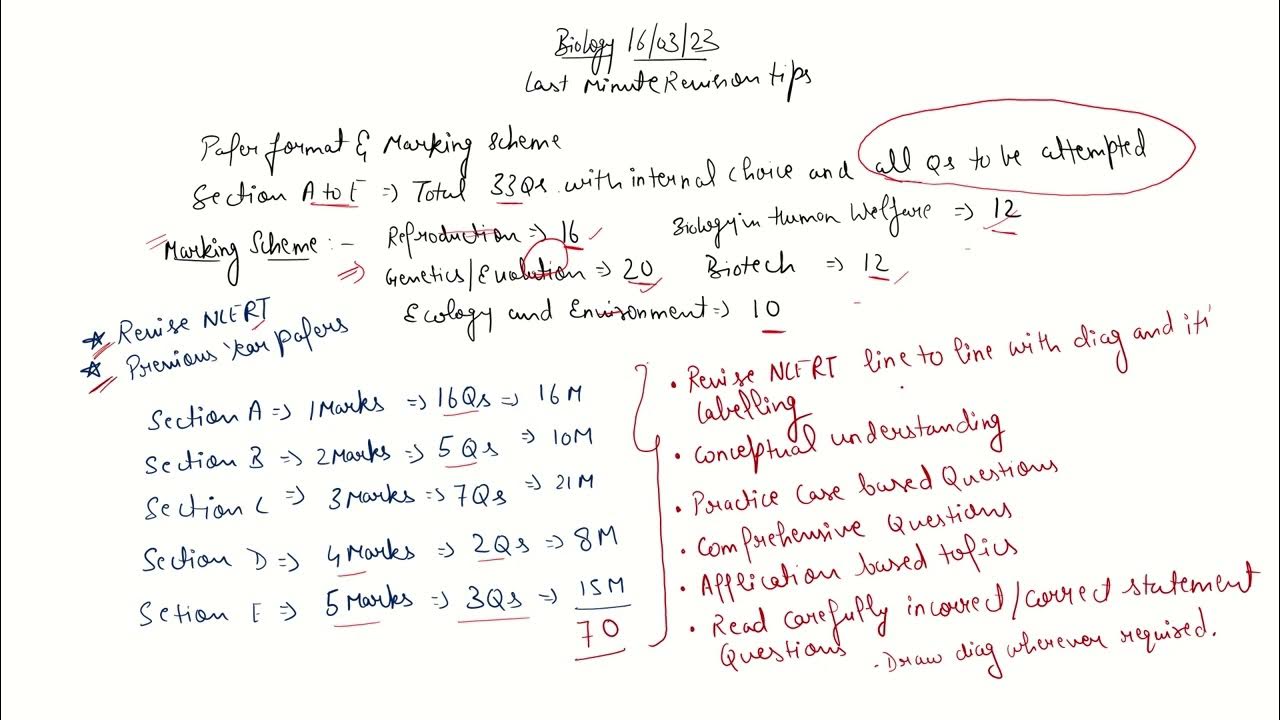 Biology 16/03/23
Last Minute Revision tips
Paper format & Marking scheme
Section A to E => Total 33Qs with internal choice and all Qs to be attempted
Marking Scheme :- Reproduction => 16 Biology in Human Welfare => 12
Genetics/Evolution => 20 Biotech => 12
Ecology and Environment => 10
* Revise NCERT
* Previous Year papers
Section A => 1 Marks => 16Qs => 16 M
Section B => 2 Marks => 5 Qs => 10M
Section C => 3 Marks => 7Qs => 21 M
Section D => 4 Marks => 2Qs => 8M
Setion E => 5 Marks => 3Qs => 15M
70
• Revise NCERT line to line with diag and its
labelling
• Conceptual understanding
• Practice Case based Questions
• Comprehensive Questions
• Application based topics
• Read carefully incorrect/correct statement
Questions
- Draw diag wherever required.